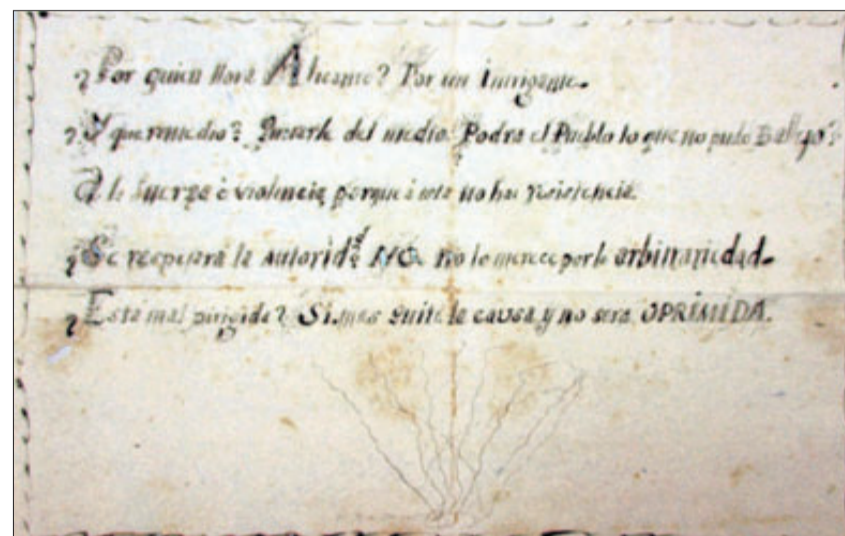 ¿Por quien llora Alicante? Por un intrigante.
¿Y que remedio? Quitarle del medio. Podra el Pueblo lo que no pudo
A la fuerza ò violencia, porque à esta no hai resistencia.
¿Se respetara la autorid.d? NO. no lo merece por la arbitrariedad.
¿Esta mal dirigida? Si. mas quite la causa y no sera OPRIMIDA.